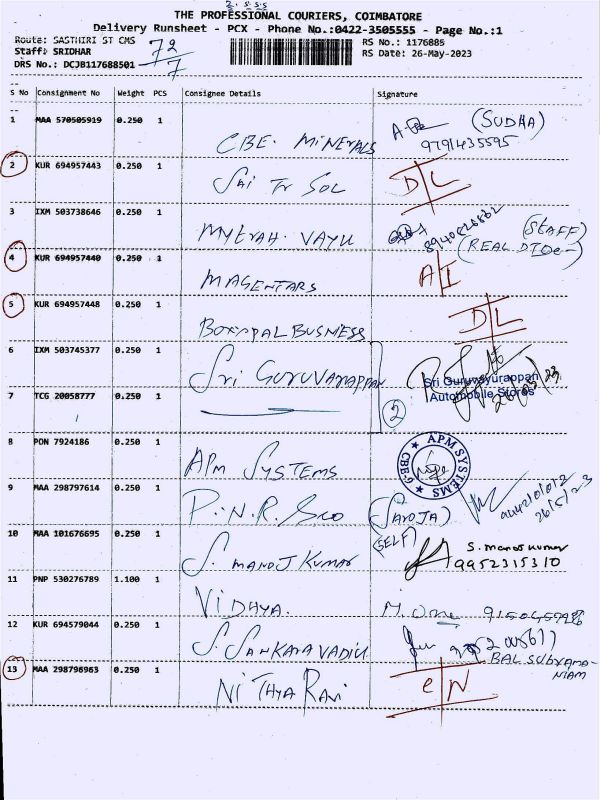 THE PROFESSIONAL COURIERS, COIMBATORE
Delivery Runsheet - PCX - Phone No.:0422-3505555 - Page No.:1
Route: SASTHIRI ST CMS RS No.: 1176885
Staff: SRIDHAR 72/7 RS Date: 26-May-2023
DRS No.: DCJB117688501
S No Consignment No Weight PCS Consignee Details Signature
1 MAA 570505919 0.250 1 CBE. MINERALS (SUDHA)
9791435595
2 KUR 694957443 0.250 1 SAI Tr SOL D/L
3 IXM 503738646 0.250 1 MYTRAH. VAYU (STAFF)
4 KUR 694957440 0.250 1 MAGENTARS A/I
5 KUR 694957448 0.250 1 BUSINESS D/L
6 IXM 503745377 0.250 1 Sri GURUVAYAPPAN Sri Guruvayurappan
Automobile Stores
7 TCG 20058777 0.250 1 2
8 PON 7924186 0.250 1 APM SYSTEMS APM SYSTEMS CBE-6
9 MAA 298797614 0.250 1 P.N.R. (SAROJA) 26/5/23
10 MAA 101676695 0.250 1 S. MANOJ KUMAR (SELF) S. Manoj Kumar
9952315310
11 PNP 530276789 1.100 1 VIDHYA.
12 KUR 694579044 0.250 1 S. SANKARAVADIU BALSUBRAMA-
NIAM
13 MAA 298796963 0.250 1 NITHYA RANI e/N